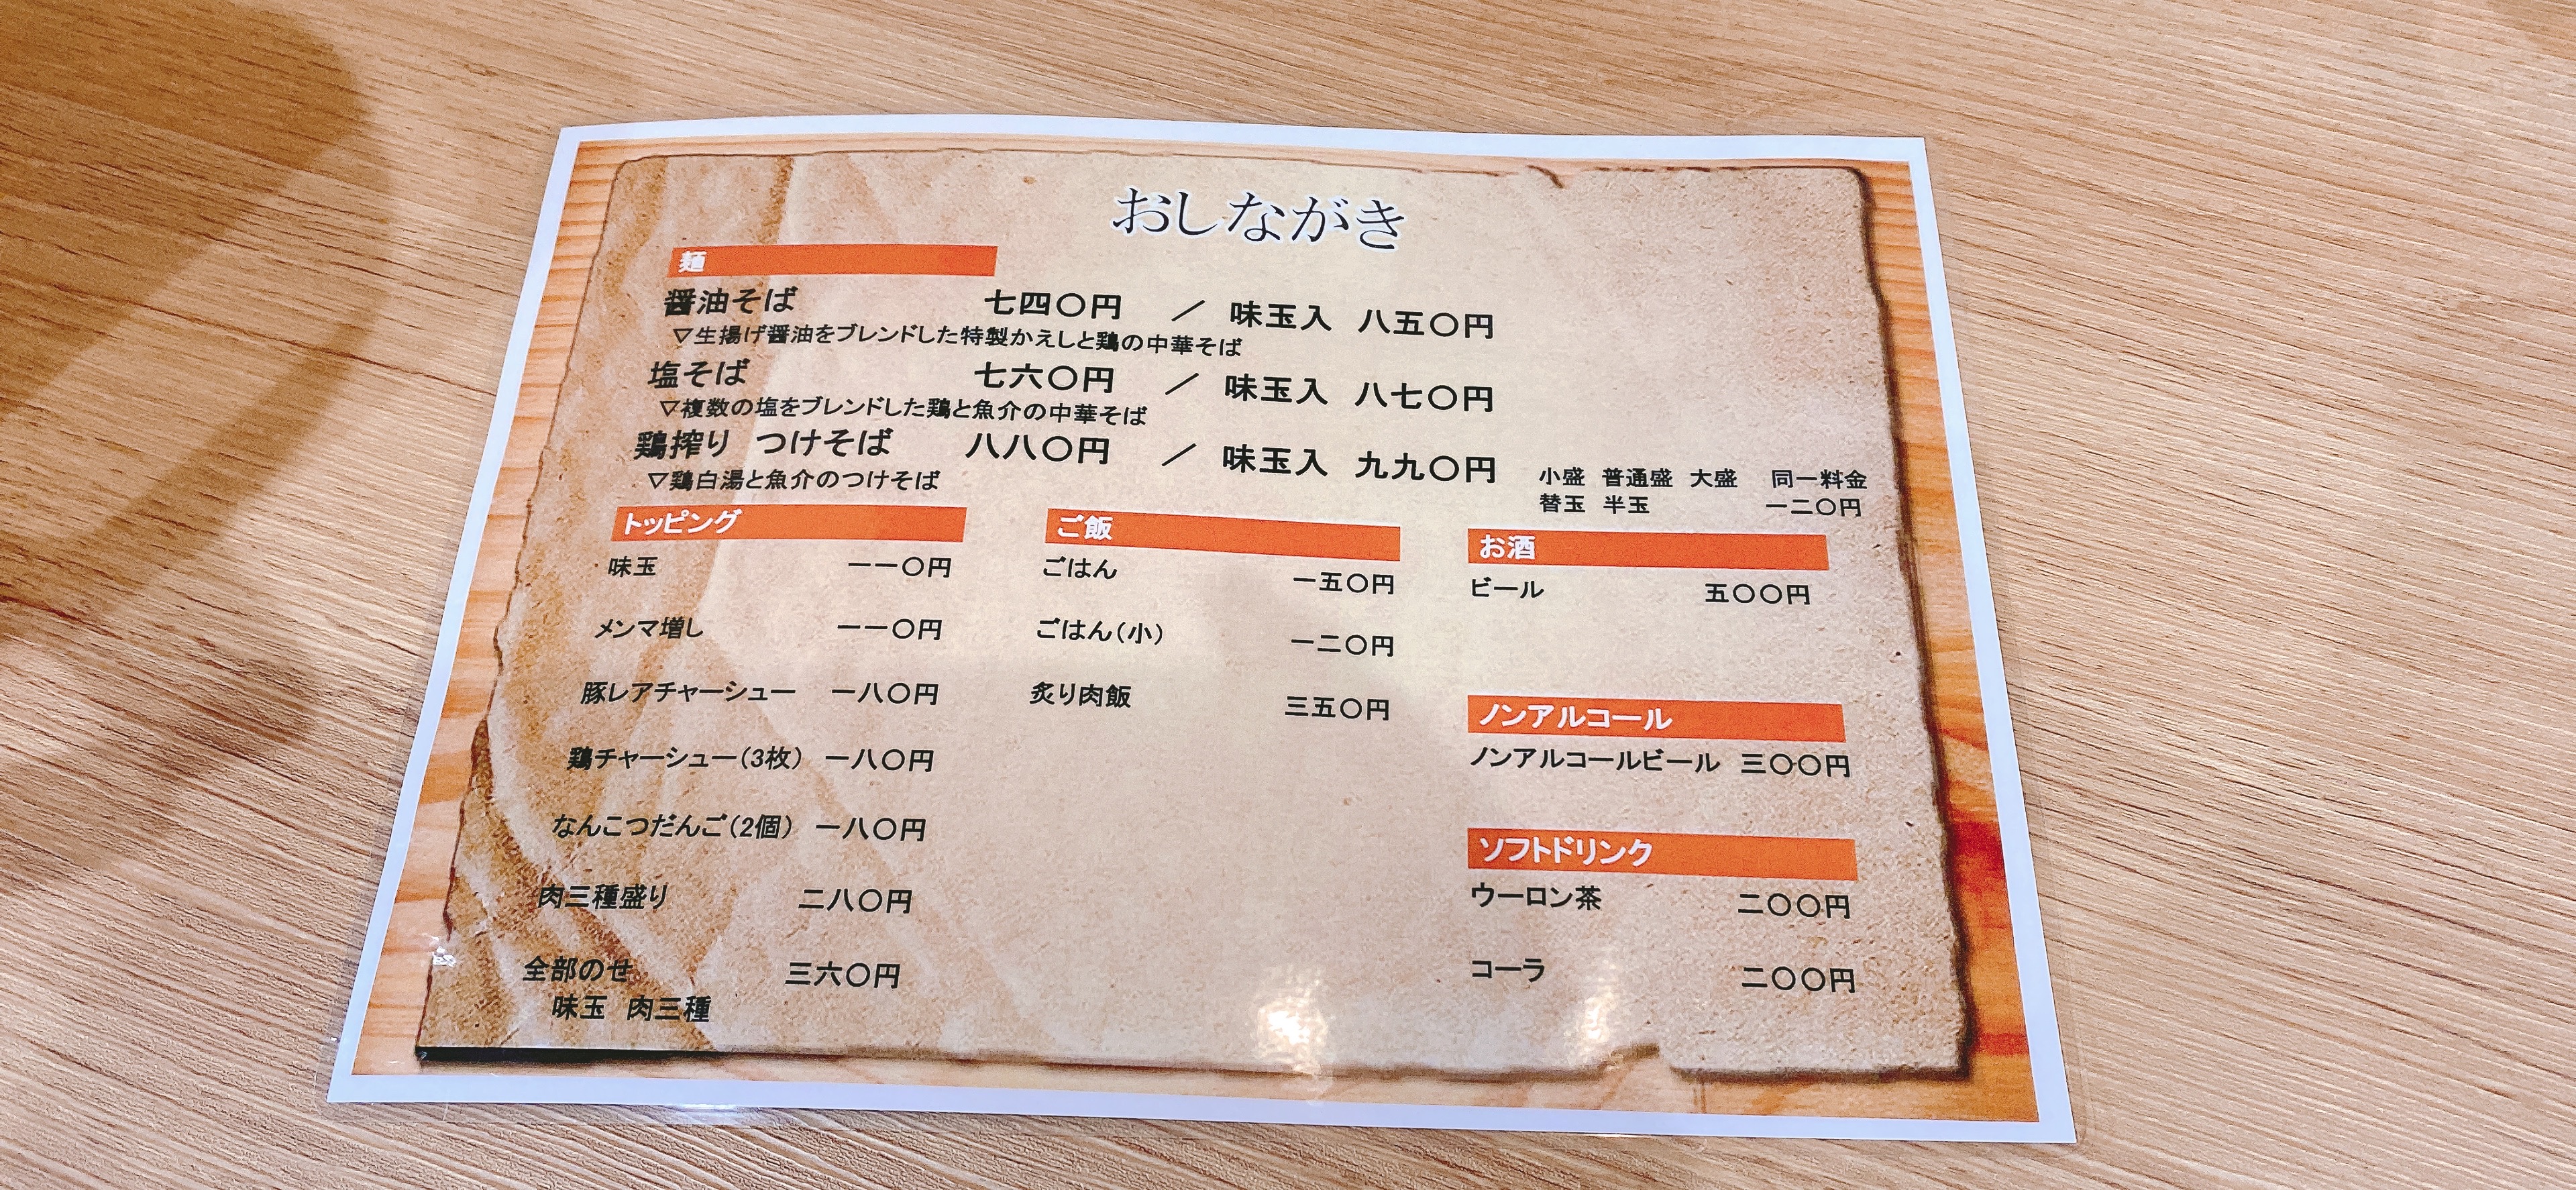 おしながき
麺
醤油そば 七四〇円 ／ 味玉入 八五〇円
▽生揚げ醤油をブレンドした特製かえしと鶏の中華そば
塩そば 七六〇円 ／ 味玉入 八七〇円
▽複数の塩をブレンドした鶏と魚介の中華そば
鶏搾り つけそば 八八〇円 ／ 味玉入 九九〇円
▽鶏白湯と魚介のつけそば
小盛 普通盛 大盛 同一料金
替玉 半玉 一二〇円
トッピング
味玉 一一〇円
メンマ増し 一一〇円
豚レアチャーシュー 一八〇円
鶏チャーシュー（3枚） 一八〇円
なんこつだんご（2個） 一八〇円
肉三種盛り 二八〇円
全部のせ 三六〇円
味玉 肉三種
ご飯
ごはん 一五〇円
ごはん（小） 一二〇円
炙り肉飯 三五〇円
お酒
ビール 五〇〇円
ノンアルコール
ノンアルコールビール 三〇〇円
ソフトドリンク
ウーロン茶 二〇〇円
コーラ 二〇〇円